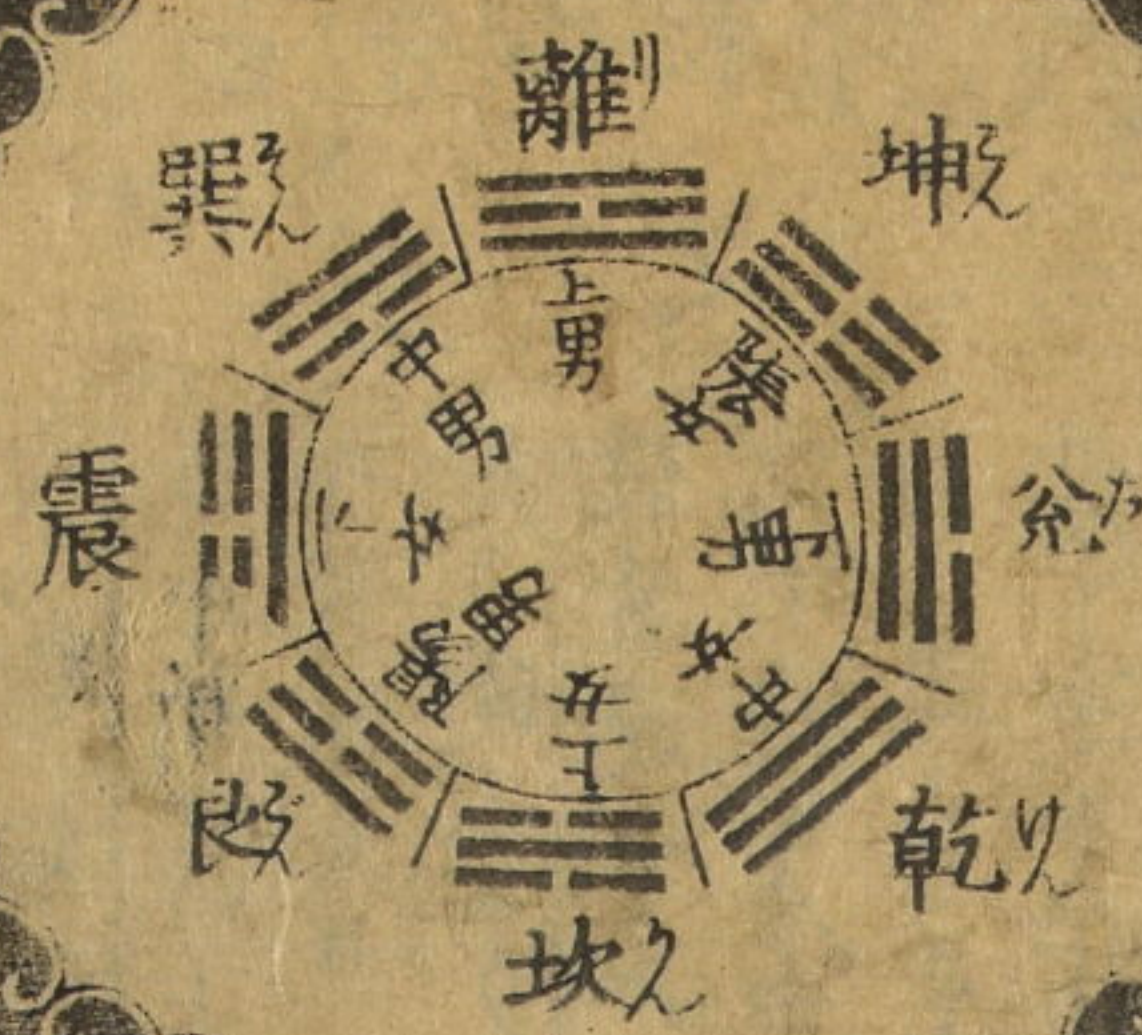 離 リ
坤 こん
兊
乾 けん
坎 かん
艮 ごん
震
巽 そん
上男
陰女
下男
中女
上女
陽男
下女
中男